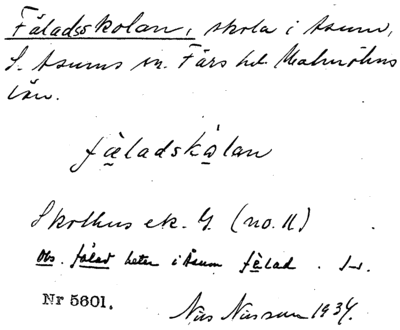 Fäladsskolan, skola i Åsum,
S. Åsums sn. Färs hd. Malmöhus
län.
fäladskolan
Skolhus ek. G. (no. 11)
Obs. fälad heter i Åsum fèlad.
Nr 5601. Nils Nilsson 1934.